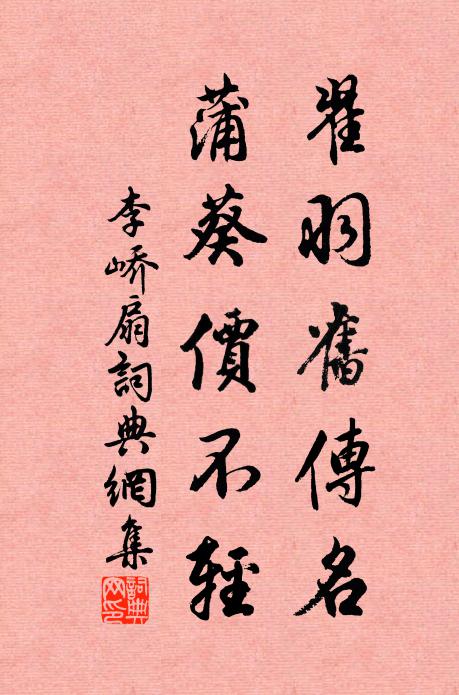 翟羽舊傳名
蒲葵價不輕
李嶠扇詞典網集
詞典网印